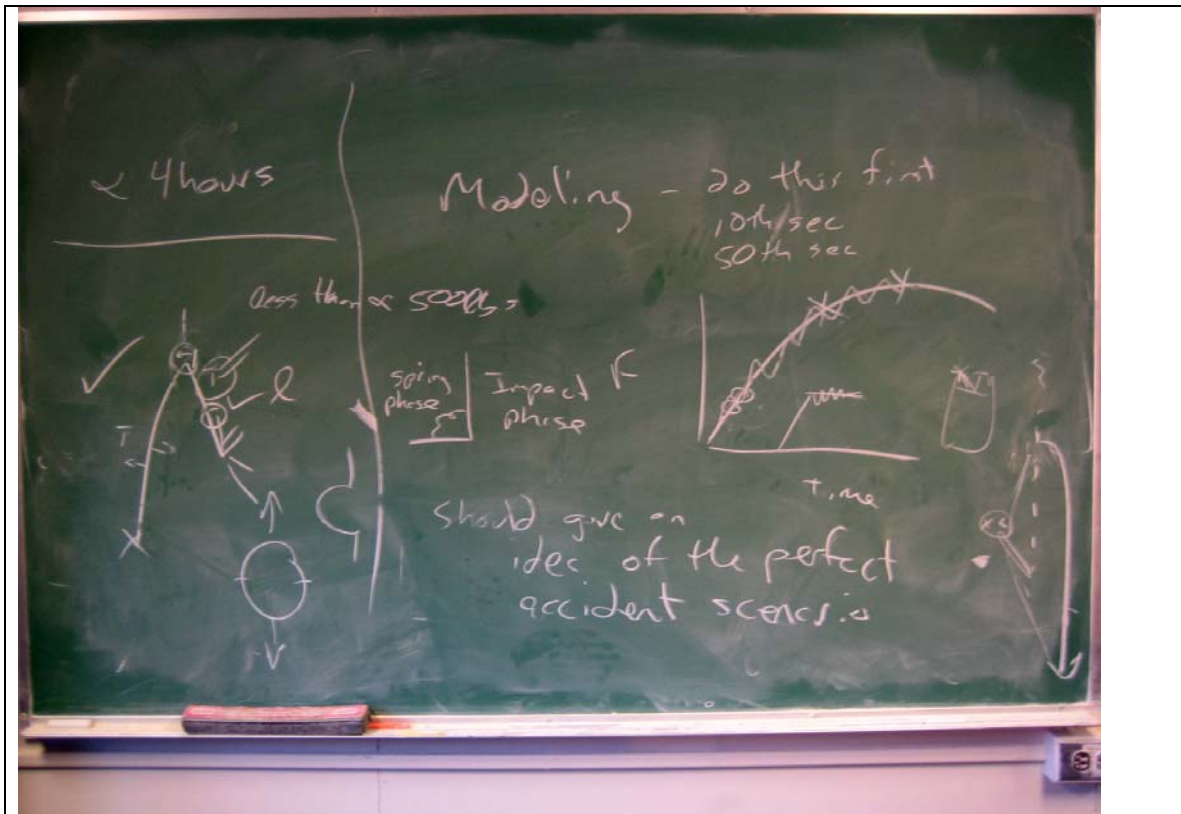 < 4 hours
Modeling - do this first
10th sec
50th sec
less than 500lbs
T
l
spring
phase
Impact
phase
F
Time
should give an
idea of the perfect
accident scenario